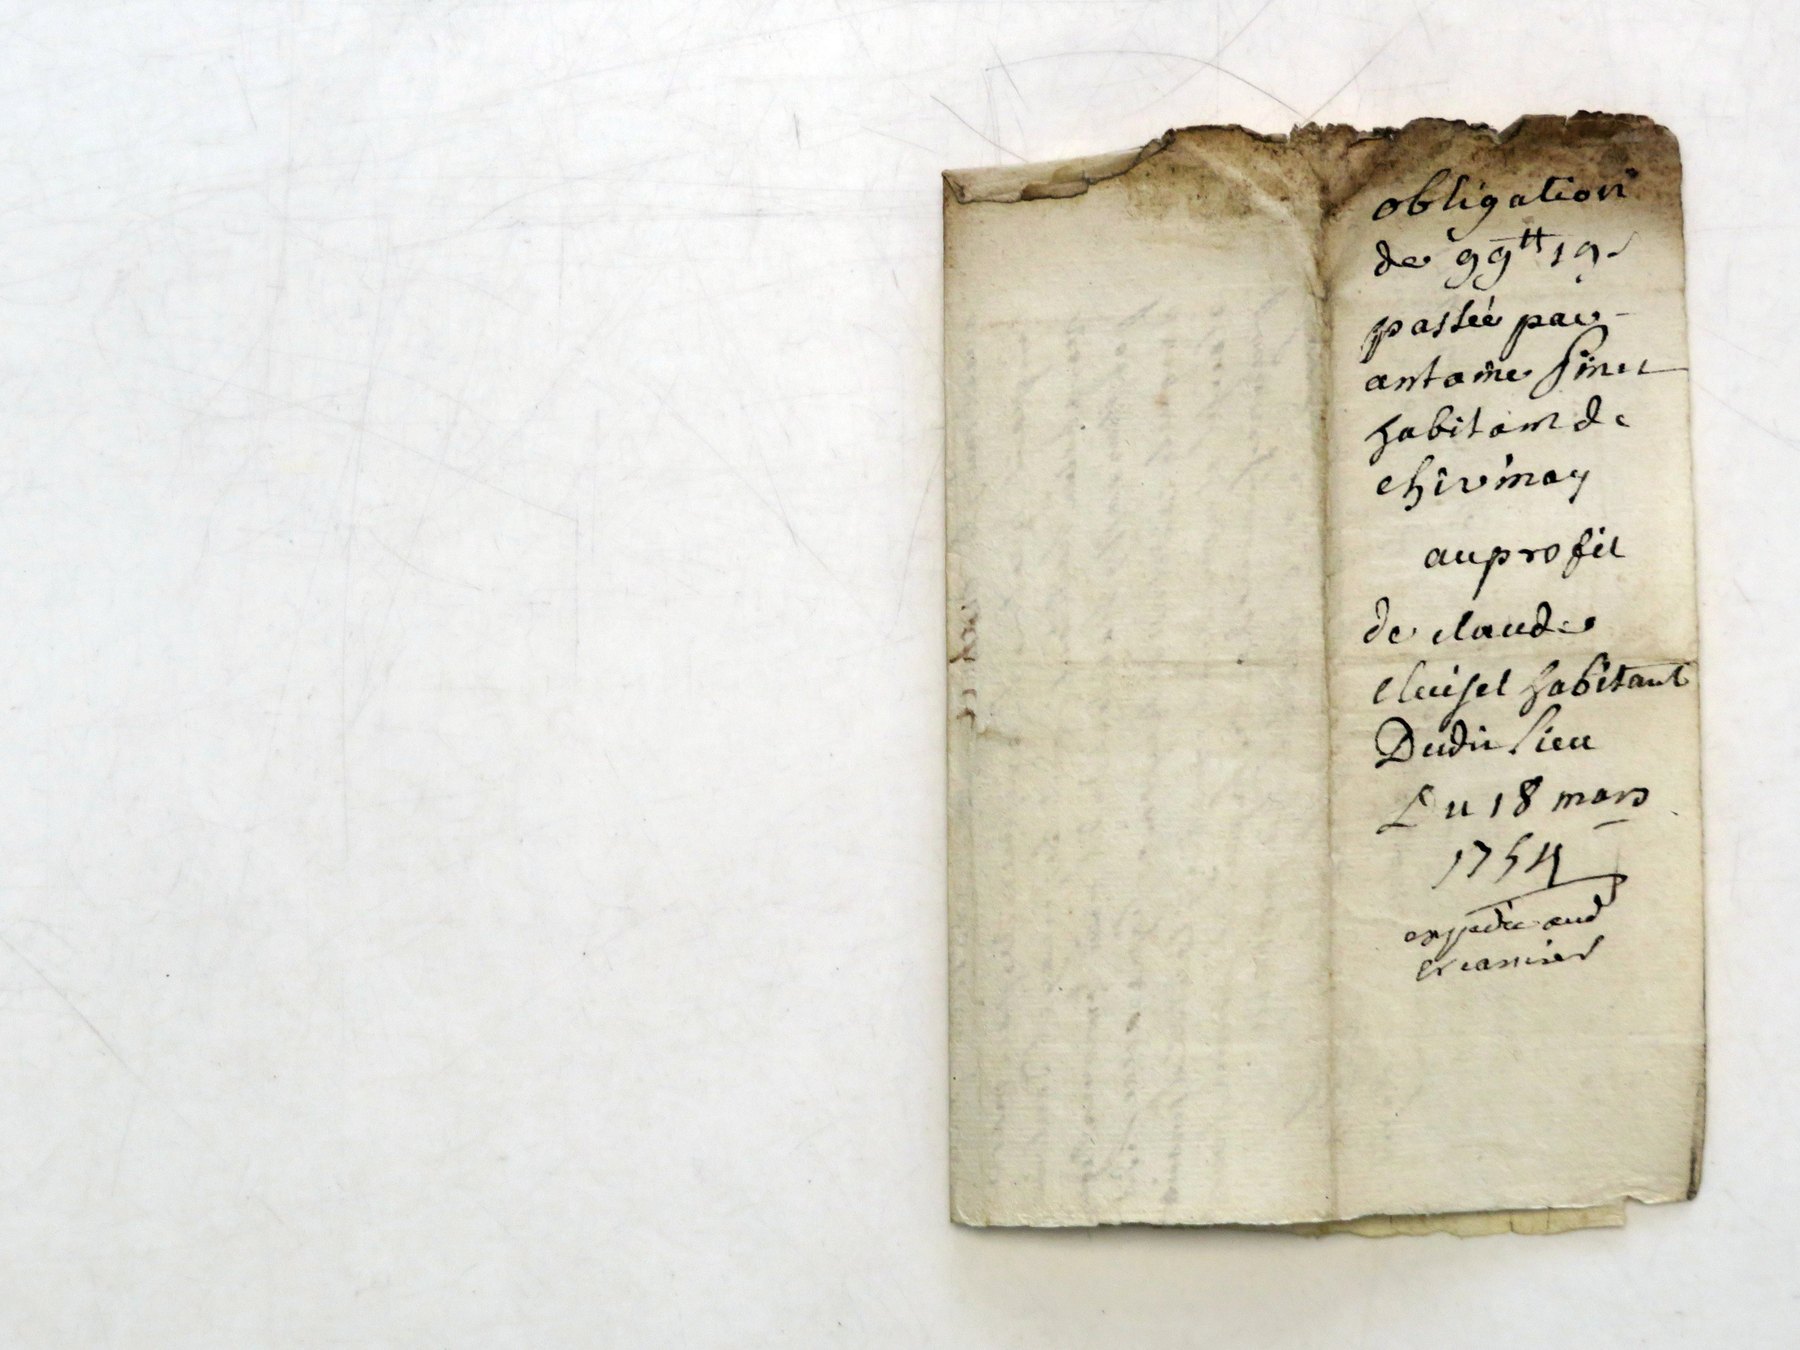 obligation
de 99tt 19s
passée par
antoine Finet
habitant de
chirinay
au profit
de claude
cluisel habitant
Dudit lieu
Du 18 mars
1754
expediée aud
creancier